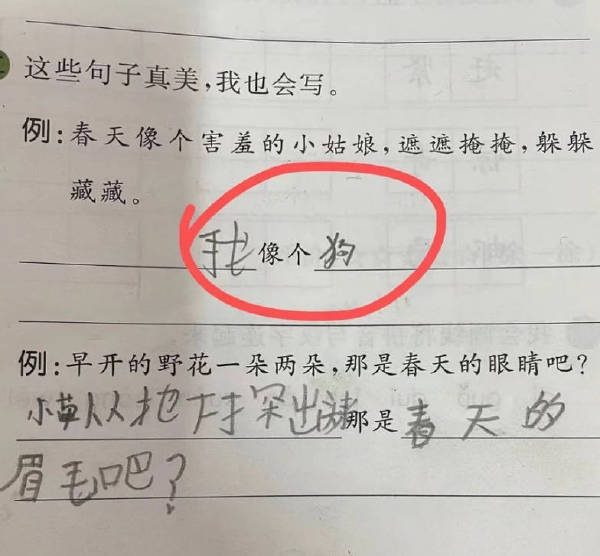 这些句子真美,我也会写。
例:春天像个害羞的小姑娘,遮遮掩掩,躲躲
藏藏。
我像个狗
例:早开的野花一朵两朵,那是春天的眼睛吧?
小草从地 探出 那是春天的
眉毛吧?